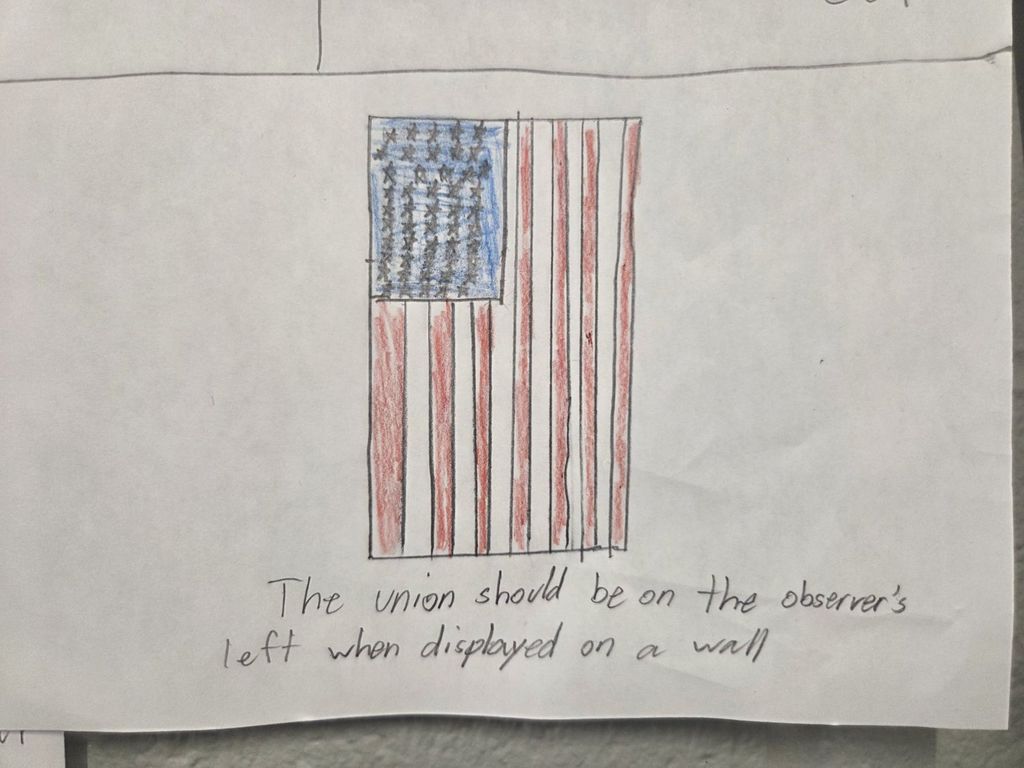 The union should be on the observer's
left when displayed on a wall